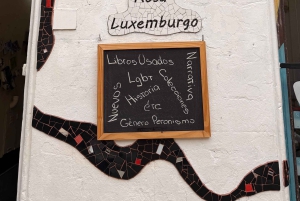 Rosa
Luxemburgo
Libros Usados
Lgbt
Nuevos
Historia
Colecciones
Narrativa
etc
Género Peronismo